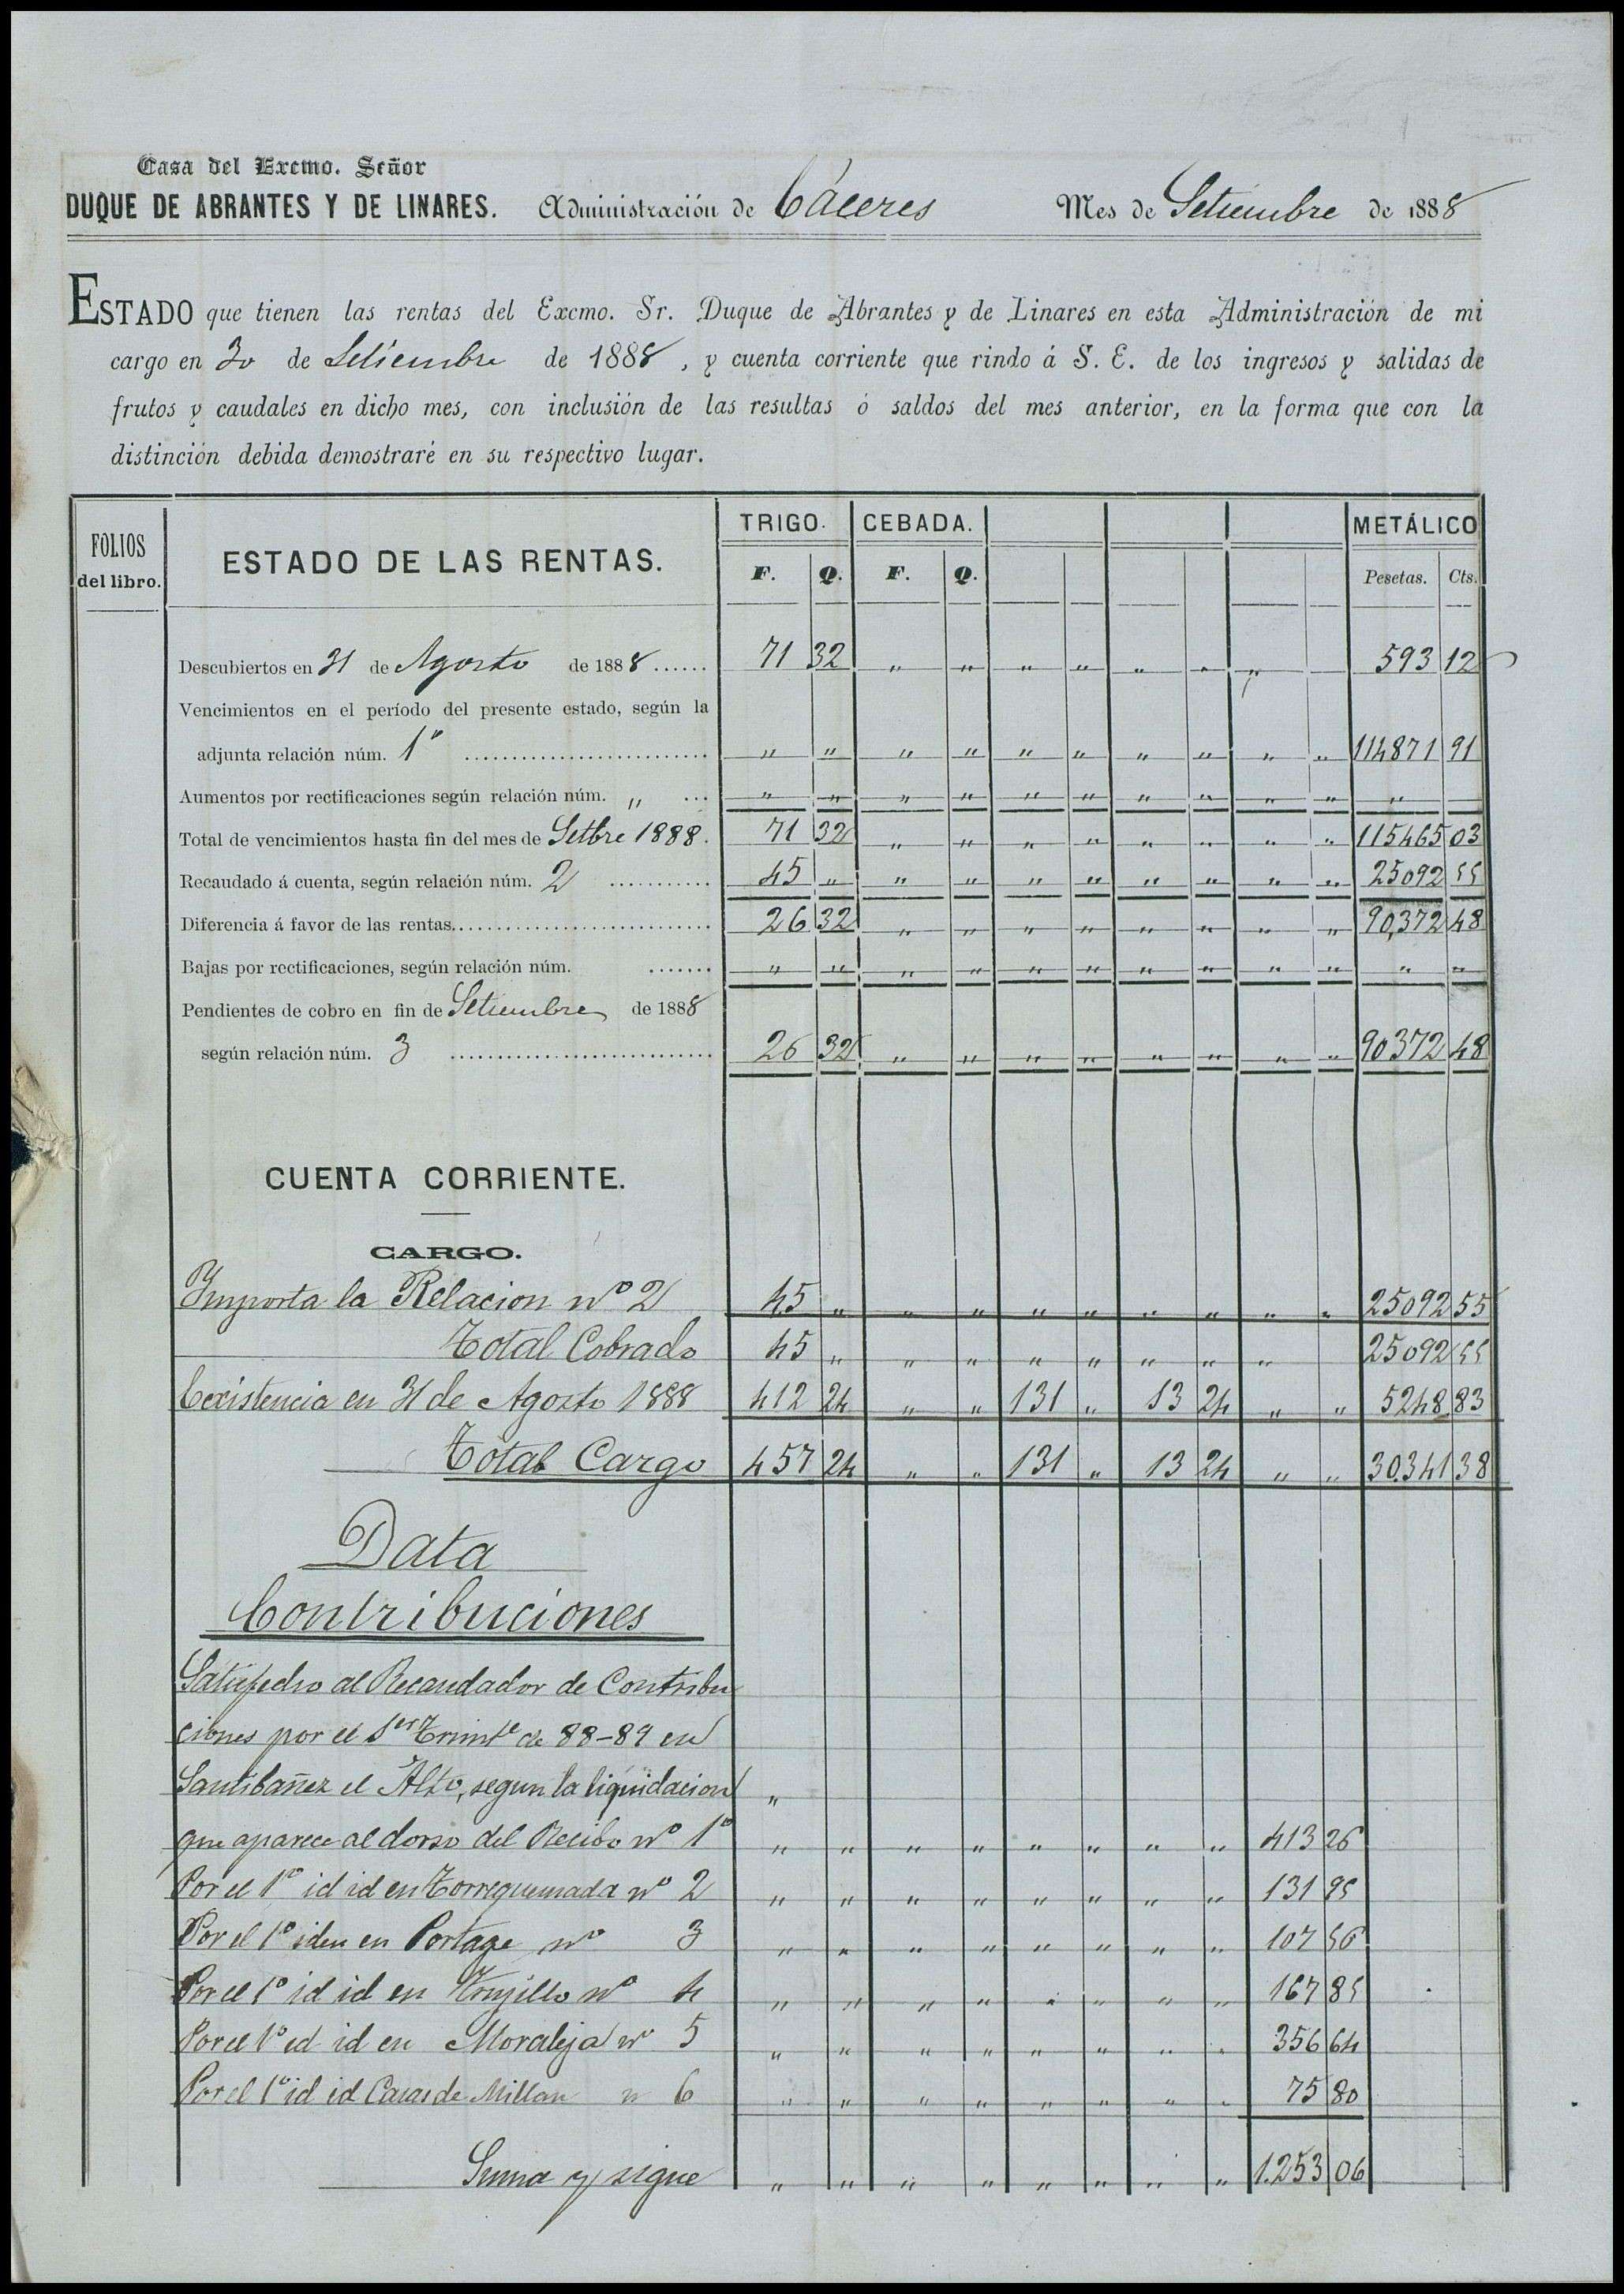 Casa del Excmo. Señor
DUQUE DE ABRANTES Y DE LINARES. Administración de Cáceres Mes de Setiembre de 1888
ESTADO que tienen las rentas del Excmo. Sr. Duque de Abrantes y de Linares en esta Administración de mi
cargo en 30 de Setiembre de 1888, y cuenta corriente que rindo á S. E. de los ingresos y salidas de
frutos y caudales en dicho mes, con inclusión de las resultas ó saldos del mes anterior, en la forma que con la
distinción debida demostraré en su respectivo lugar.
FOLIOS del libro. ESTADO DE LAS RENTAS. TRIGO. CEBADA. METÁLICO
F. Q. F. Q. Pesetas. Cts.
Descubiertos en 31 de Agosto de 1888 ...... 71 32 " " " " " " " 593 12
Vencimientos en el período del presente estado, según la
adjunta relación núm. 1º .......... " " " " " " " " " " 114871 91
Aumentos por rectificaciones según relación núm. " ... " " " " " " " " " " "
Total de vencimientos hasta fin del mes de Setbre 1888. 71 32 " " " " " " " " 115465 03
Recaudado á cuenta, según relación núm. 2 .......... 45 " " " " " " " " " 25092 55
Diferencia á favor de las rentas.......... 26 32 " " " " " " " " 90,372 48
Bajas por rectificaciones, según relación núm. ....... " " " " " " " " " " " "
Pendientes de cobro en fin de Setiembre de 1888
según relación núm. 3 .......... 26 32 " " " " " " " " 90372 48
CUENTA CORRIENTE.
CARGO.
Importa la Relacion nº 2 45 " " " " " " " " " 25092 55
Total Cobrado 45 " " " " " " " " 25092 55
Eexistencia en 31 de Agosto 1888 412 24 " " 131 " 13 24 " " 5248 83
Total Cargo 457 24 " " 131 " 13 24 " " 30.341 38
Data
Contribuciones
Satisfecho al Recaudador de Contribu
ciones por el 1er Trimte de 88-89 en
Santibañez el Alto, segun la liquidacion "
que aparece al dorso del Recibo nº 1º " " " " " " " " 413 26
Por el 1º id id en Torrequemada nº 2 " " " " " " " " 131 95
Por el 1º iden en Portage nº 3 " " " " " " " " 107 56
Por el 1º id id en Trujillo nº 4 " " " " " " " " 167 85
Por el 1º id id en Moraleja nº 5 " " " " " " " " 356 64
Por el 1º id id Casas de Millan n 6 " " " " " " " " 75 80
Suma y sigue " " " " " " " " 1.253 06